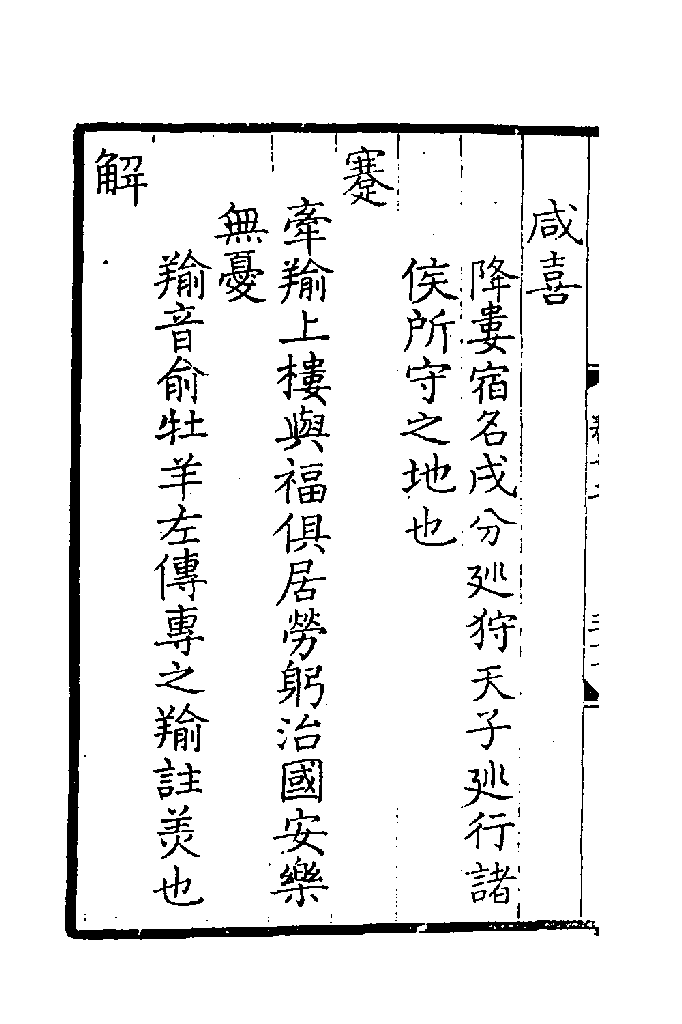 咸喜
降婁宿名戌分廵狩天子廵行諸
侯所守之地也
蹇
牽羭上樓與福俱居勞躬治國安樂
無憂
羭音俞牡羊左傳專之羭註羙也
解